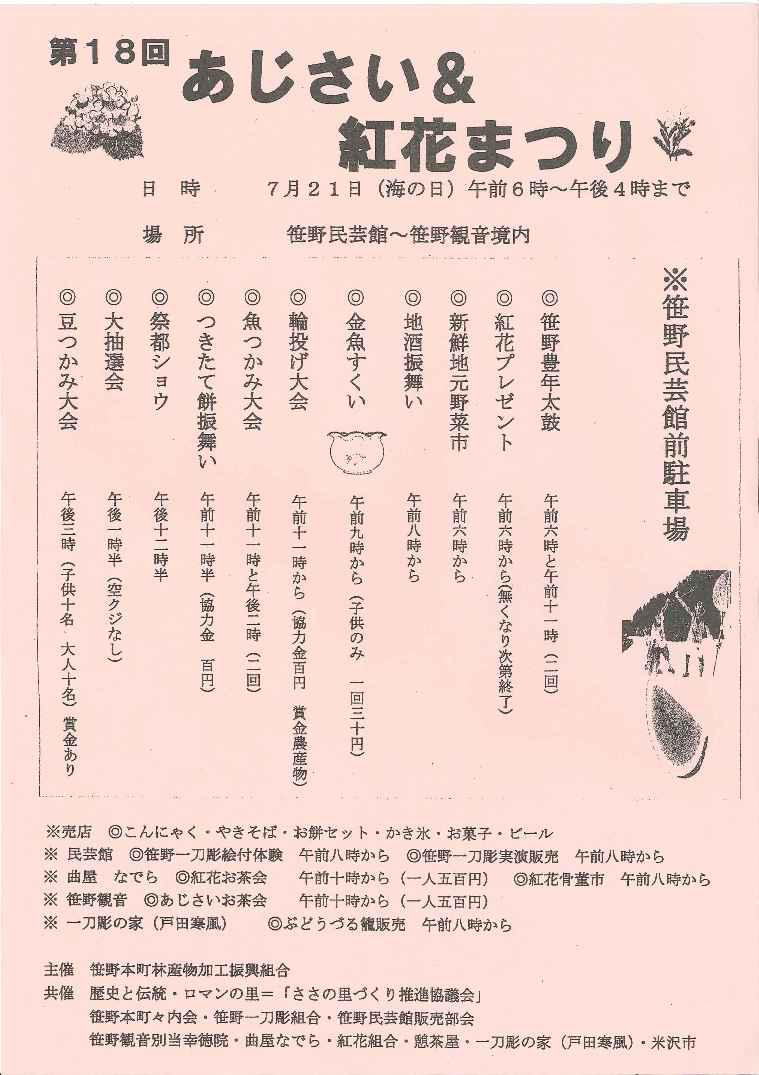 第１８回
あじさい＆
紅花まつり
日　時　　７月２１日（海の日）午前６時～午後４時まで
場　所　　笹野民芸館～笹野観音境内
※笹野民芸館前駐車場
◎笹野豊年太鼓　午前六時と午前十一時（二回）
◎紅花プレゼント　午前六時から（無くなり次第終了）
◎新鮮地元野菜市　午前六時から
◎地酒振舞い　午前八時から
◎金魚すくい　午前九時から（子供のみ　一回三十円）
◎輪投げ大会　午前十一時から（協力金百円　賞金農産物）
◎魚つかみ大会　午前十一時と午後二時（二回）
◎つきたて餅振舞い　午前十一時半（協力金　百円）
◎祭都ショウ　午後十二時半
◎大抽選会　午後一時半（空クジなし）
◎豆つかみ大会　午後三時（子供十名　大人十名）賞金あり
※売店　◎こんにゃく・やきそば・お餅セット・かき氷・お菓子・ビール
※ 民芸館　◎笹野一刀彫絵付体験　午前八時から　◎笹野一刀彫実演販売　午前八時から
※ 曲屋　なでら　◎紅花お茶会　　午前十時から（一人五百円）　◎紅花骨董市　午前八時から
※ 笹野観音　◎あじさいお茶会　　午前十時から（一人五百円）
※ 一刀彫の家（戸田寒風）　　◎ぶどうづる籠販売　午前八時から
主催　笹野本町林産物加工振興組合
共催　歴史と伝統・ロマンの里＝「ささの里づくり推進協議会」
笹野本町々内会・笹野一刀彫組合・笹野民芸館販売部会
笹野観音別当幸徳院・曲屋なでら・紅花組合・憩茶屋・一刀彫の家（戸田寒風）・米沢市